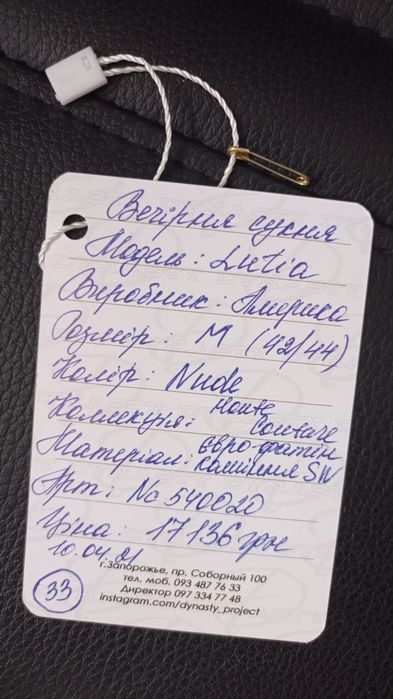 Вечірня сукня
Модель: Lutia
Виробник: Америка
Розмір: М (42/44)
Колір: Nude
Коллекция: Haute Couture
Матеріал: євро-фатин
каміння SW
Арт: № 540020
Ціна: 17136 грн
10.04.21
г.Запорожье, пр. Соборный 100
тел. моб. 093 487 76 33
Директор 097 334 77 48
instagram.com/dynasty_project
33